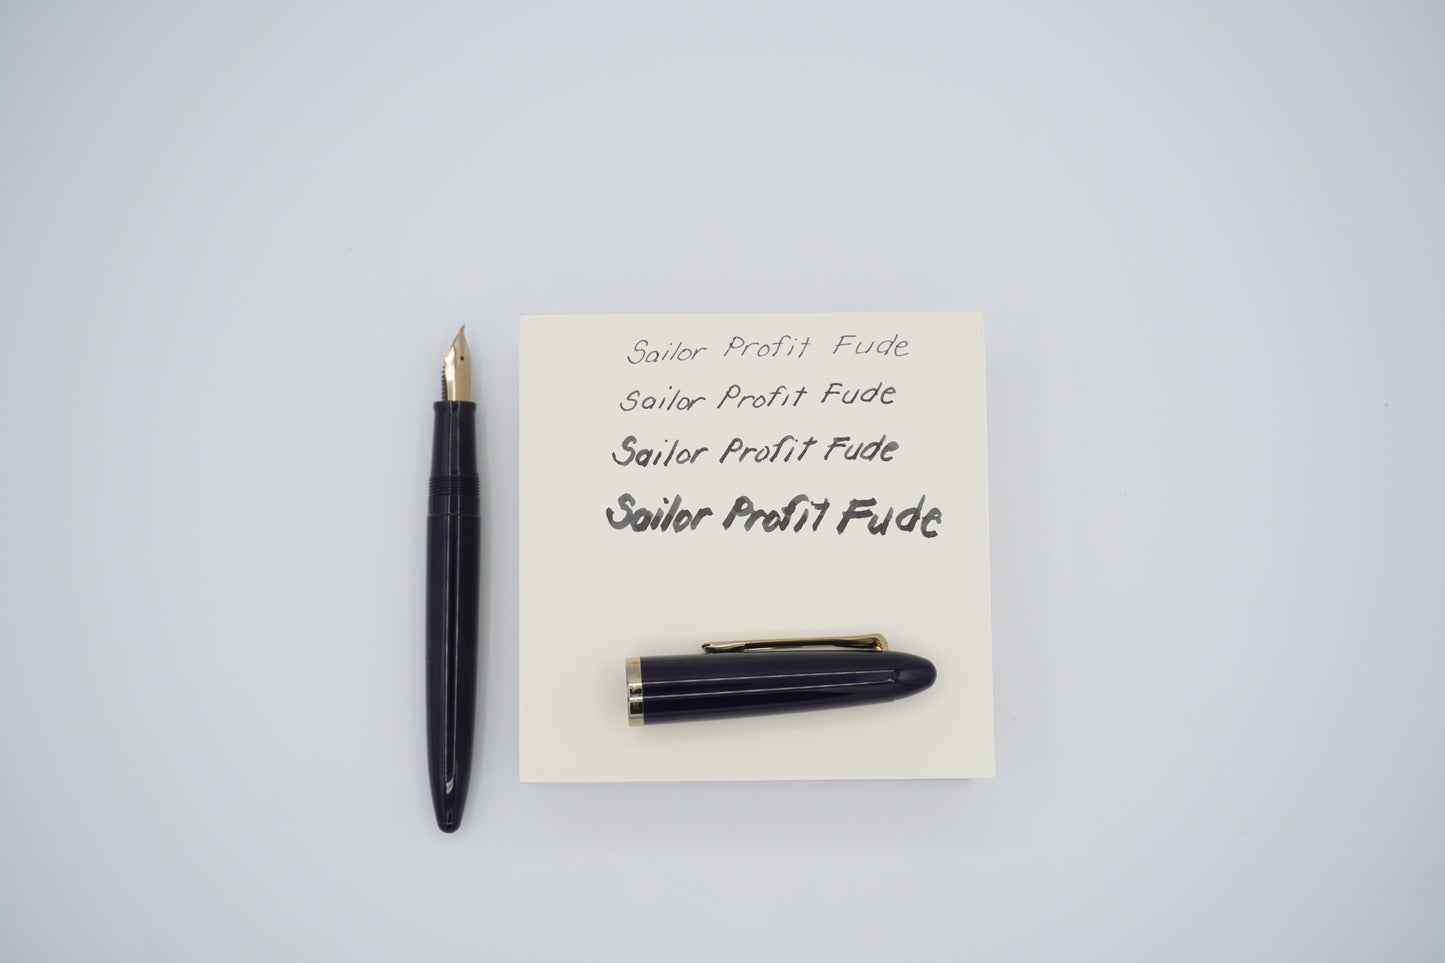 Sailor Profit Fude
Sailor Profit Fude
Sailor Profit Fude
Sailor Profit Fude